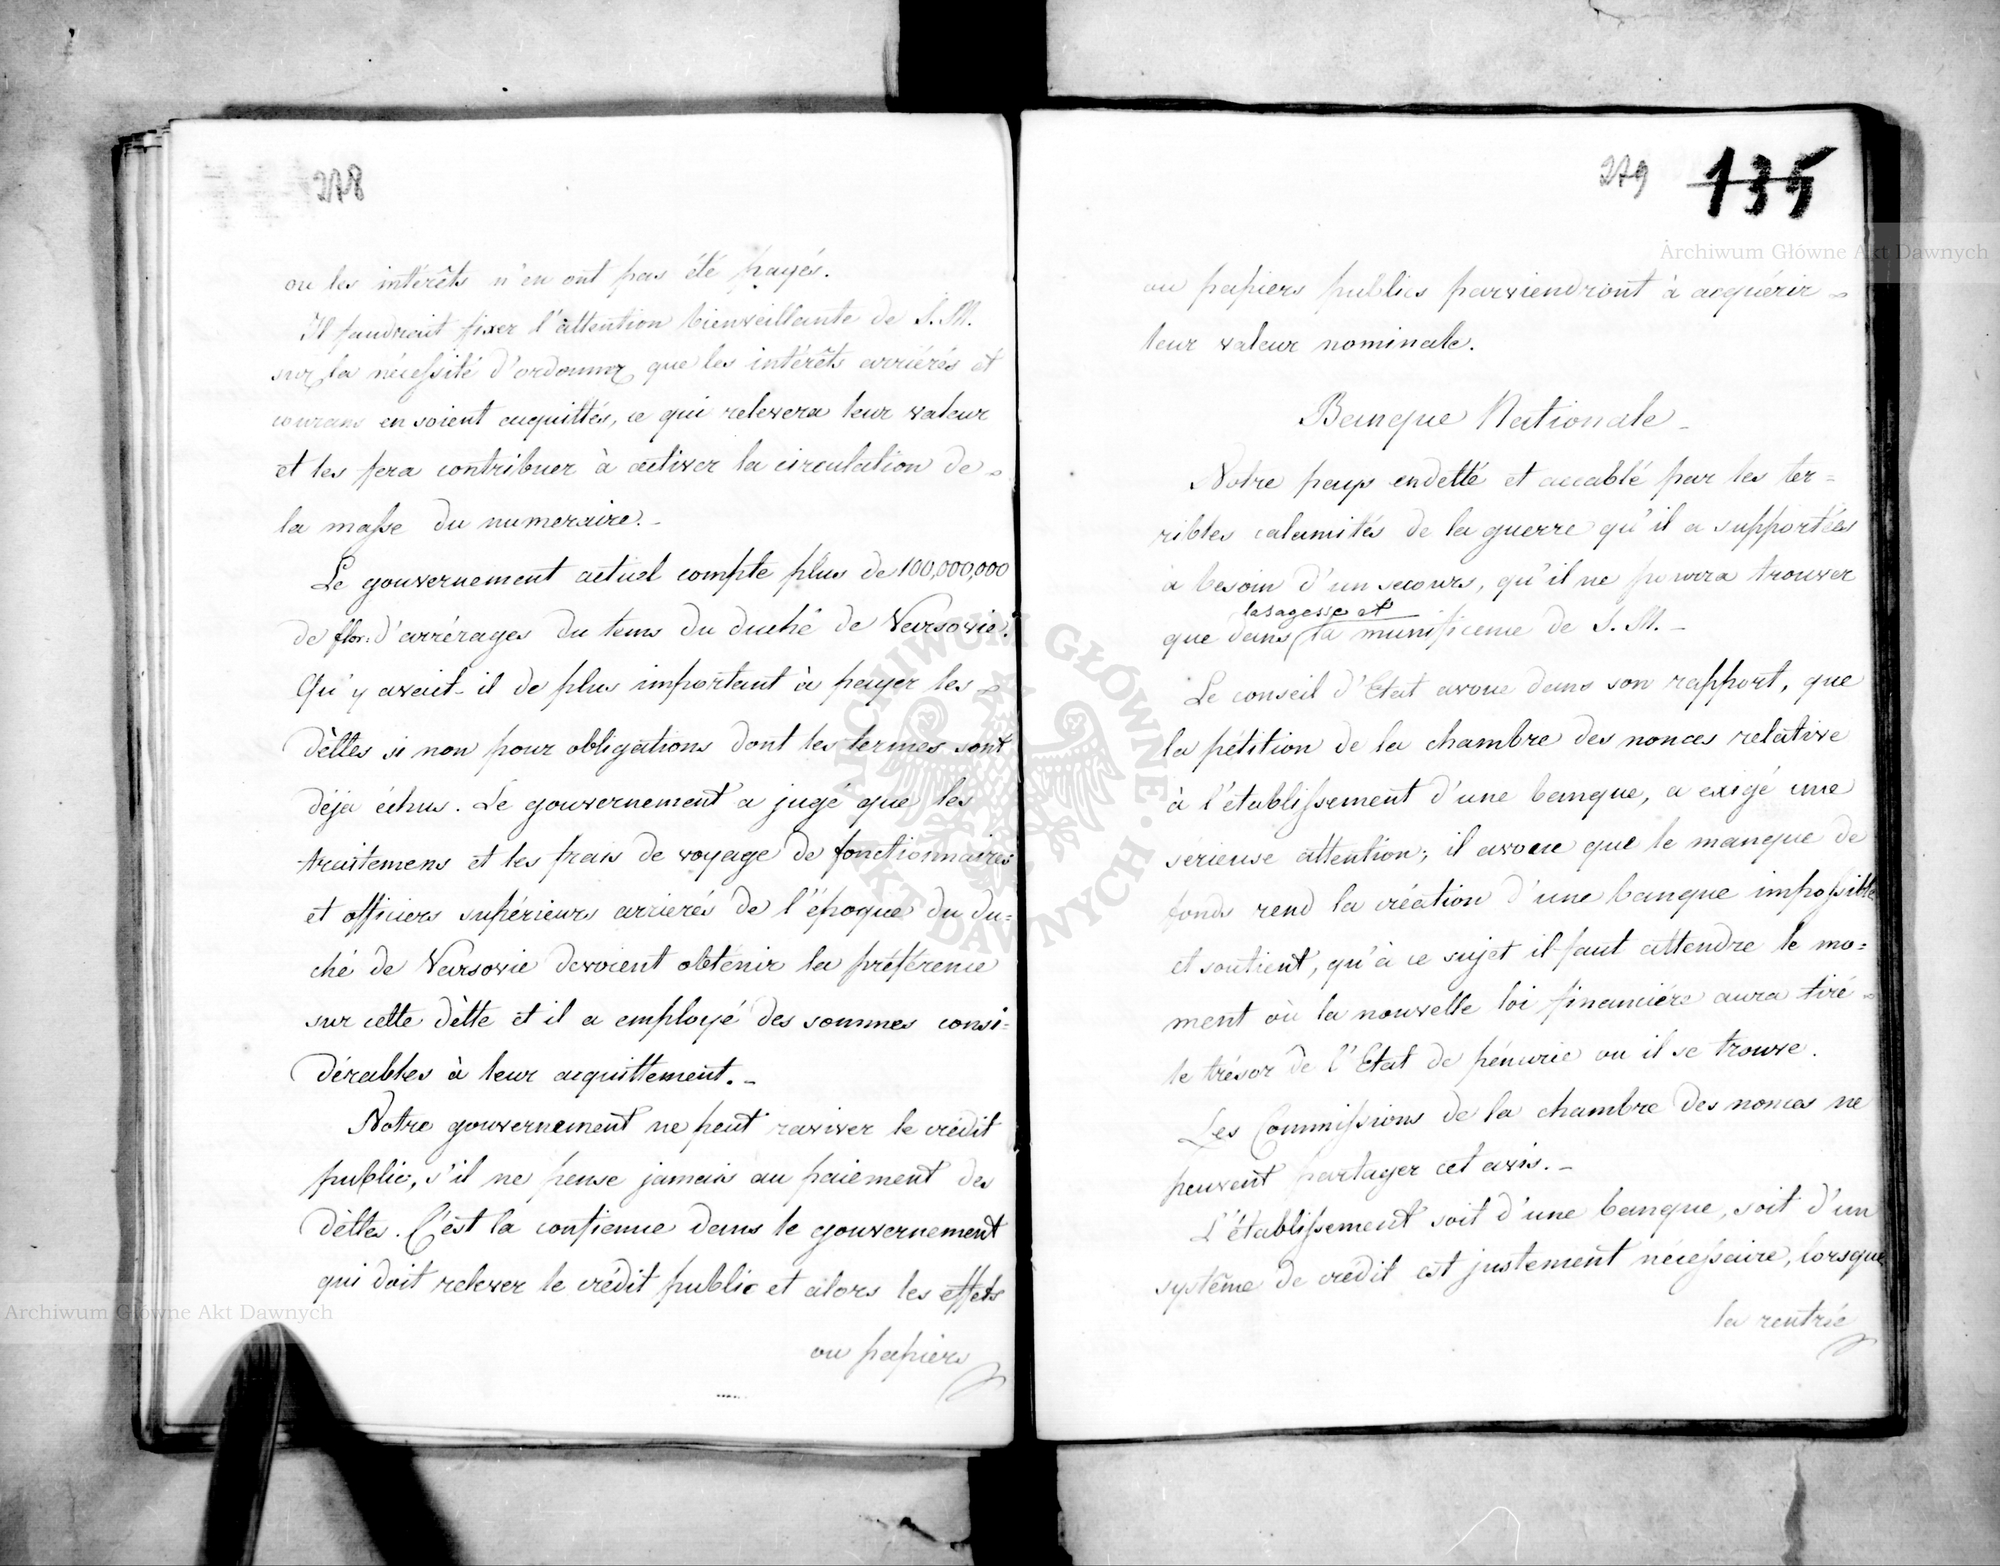 278
ou les intérêts n'en ont pas été payés.
Il faudroit fixer l'attention bienveillante de S. M.
sur la nécessité d'ordonner que les intérêts arriérés et
courans en soient acquittés, ce qui relevera leur valeur
et les fera contribuer à activer la circulation de
la masse du numeraire.
Le gouvernement actuel compte plus de 100,000,000
de flor: d'arrérages du tems du duché de Varsovie.
Qu'y avait-il de plus important à payer les
dèttes si non pour obligations dont les termes sont
déja échus. Le gouvernement a jugé que les
traitemens et les frais de voyage de fonctionnaires
et officiers supérieurs arrierés de l'époque du du=
ché de Varsovie devoient obtenir la préférence
sur cette dètte et il a employé des sommes consi=
dérables à leur acquittement.
Notre gouvernement ne peut raviver le crédit
public, s'il ne pense jamais au paiement des
dèttes. C'est la confience dans le gouvernement
qui doit relever le crédit public et alors les effets
ou papiers
279 135
ou papiers publics parviendront à acquérir
leur valeur nominale.
Banque Nationale
Notre pays endetté et accablé par les ter=
ribles calamités de la guerre qu'il a supportées
a besoin d'un secours, qu'il ne pourra trouver
la sagesse et
que dans la munificence de S. M.
Le conseil d'Etat avoue dans son rapport, que
la pétition de la chambre des nonces relative
à l'établissement d'une banque, a exigé une
sérieuse attention; il avoue que le manque de
fonds rend la création d'une banque impossible
et soutient, qu'à ce sujet il faut attendre le mo=
ment où la nouvelle loi financiére aura tiré
le trésor de l'Etat de pénurie ou il se trouve.
Les Commissions de la chambre des nonces ne
peuvent partager cet avis.
L'établissement soit d'une banque, soit d'un
système de crédit est justement nécessaire, lorsque
la rentrée
Archiwum Główne Akt Dawnych
Archiwum Główne Akt Dawnych
ARCHIWUM GŁÓWNE AKT DAWNYCH